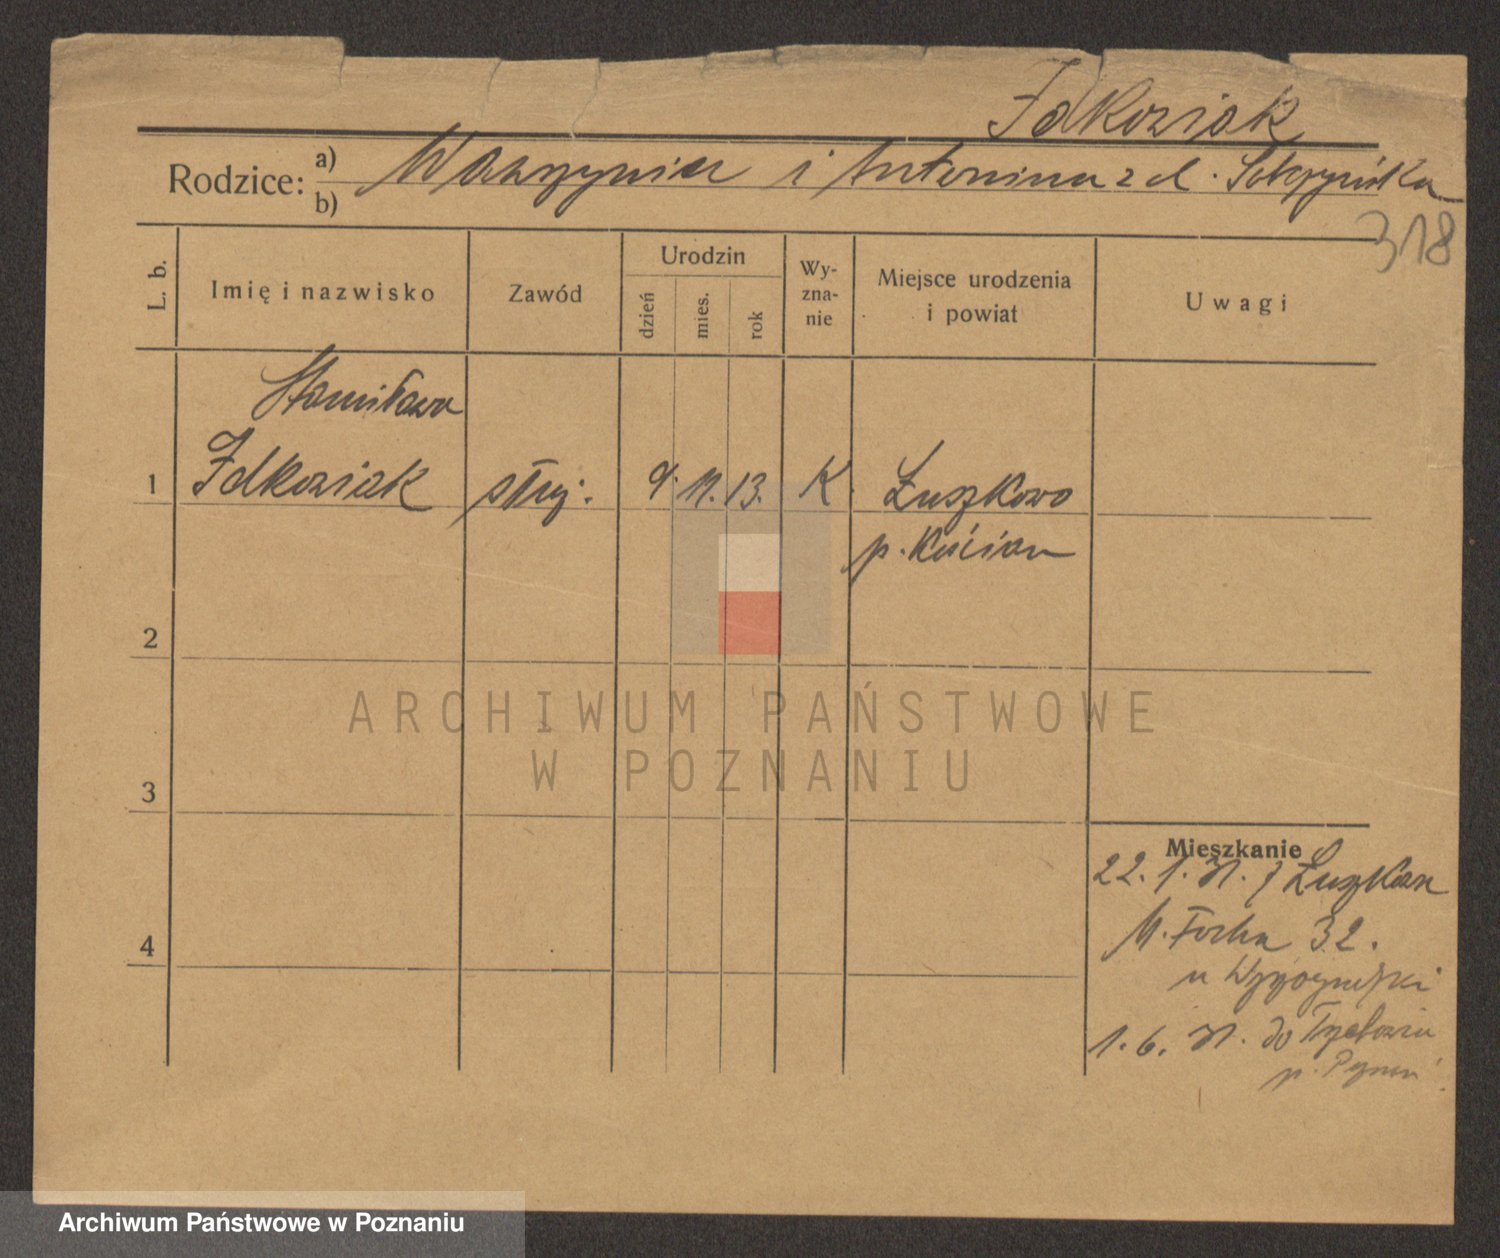 Idkowiak
Rodzice: a) Wawrzyniec i Antonina z d.
b)
318
L. b.
Imię i nazwisko
Zawód
Urodzin
dzień
mies.
rok
Wy-
zna-
nie
Miejsce urodzenia
i powiat
Uwagi
Stanisława
1 Idkowiak służ. 9. 11. 13. K. Łuszkowo
p. Kościan
2
3
4
ARCHIWUM PAŃSTWOWE
W POZNANIU
Mieszkanie
22. 1. 31. z
M. Focha 32.
u
1. 6. 31. do
p.
Archiwum Państwowe w Poznaniu